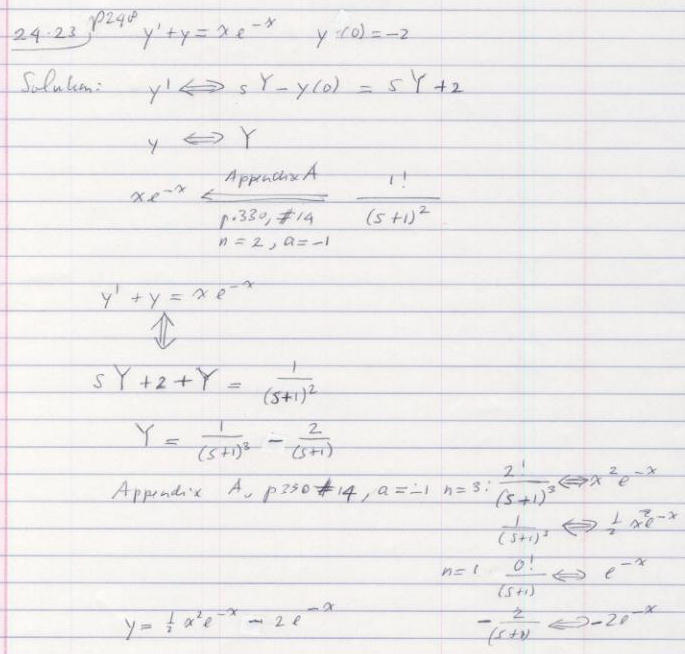 24.23, p240 y' + y = x e^-x y(0) = -2
Solution: y' ⟺ sY - y(0) = sY + 2
y ⟺ Y
x e^-x ← Appendix A p.330, #14 n = 2, a = -1 1!/(s+1)^2
y' + y = x e^-x
⇕
sY + 2 + Y = 1/(s+1)^2
Y = 1/(s+1)^3 - 2/(s+1)
Appendix A, p330 #14, a = -1 n = 3: 2!/(s+1)^3 ⟺ x^2 e^-x
1/(s+1)^3 ⟺ 1/2 x^2 e^-x
n = 1 0!/(s+1) ⟺ e^-x
y = 1/2 x^2 e^-x - 2 e^-x -2/(s+1) ⟺ -2e^-x